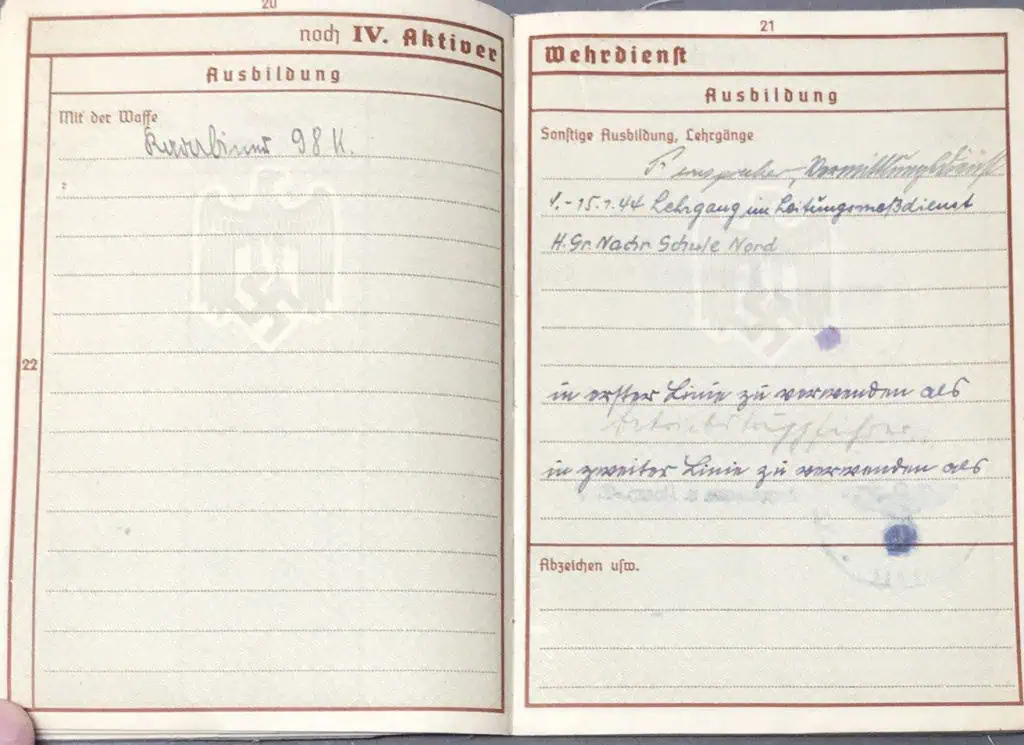 20
noch IV. Aktiver
Ausbildung
Mit der Waffe
Karabiner 98 K.
22
21
Wehrdienst
Ausbildung
Sonstige Ausbildung, Lehrgänge
Fernsprecher, Vermittlungsdienst
1.-15.1.44 Lehrgang im Leitungsmeßdienst
H.Gr. Nachr. Schule Nord
in erster Linie zu verwenden als
in zweiter Linie zu verwenden als
Abzeichen usw.